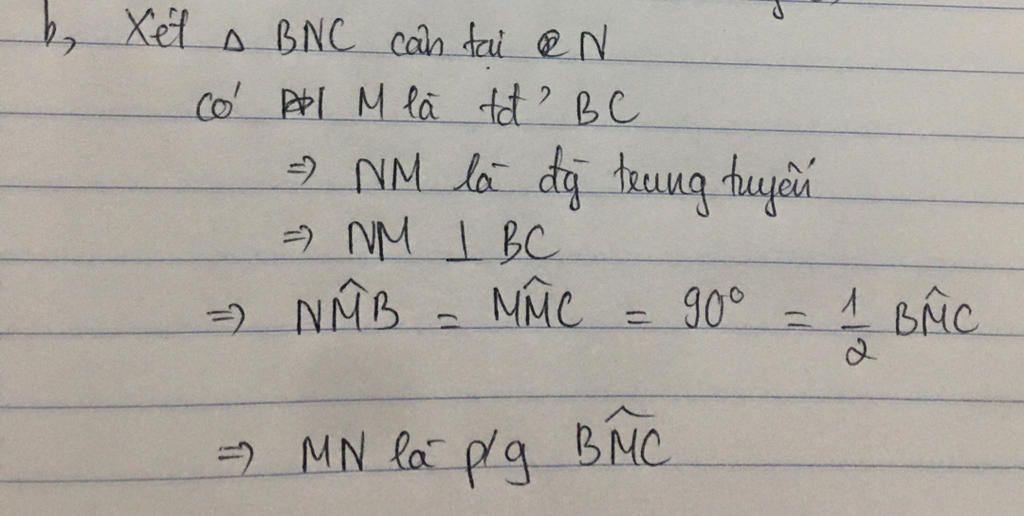 b, Xét Δ BNC cân tại N
có M là tđ' BC
⇒ NM là đg trung tuyến
⇒ NM ⊥ BC
⇒ NM̂B = MM̂C = 90° = 1/2 BM̂C
⇒ MN là p/g BM̂C